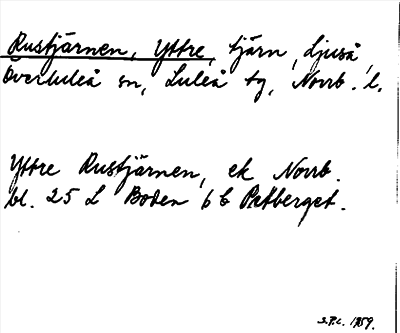 Rustjärnen, Yttre, tjärn, Ljuså,
Överluleå sn, Luleå tg, Norrb. l.
Yttre Rustjärnen, ek Norrb.
bl. 25 L Boden 6 b Patberget.
1959.